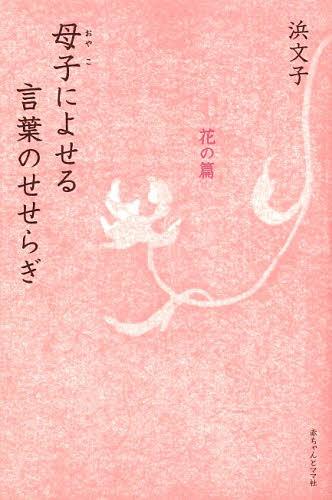 浜文子
おやこ
母子によせる
言葉のせせらぎ
花の篇
赤ちゃんとママ社